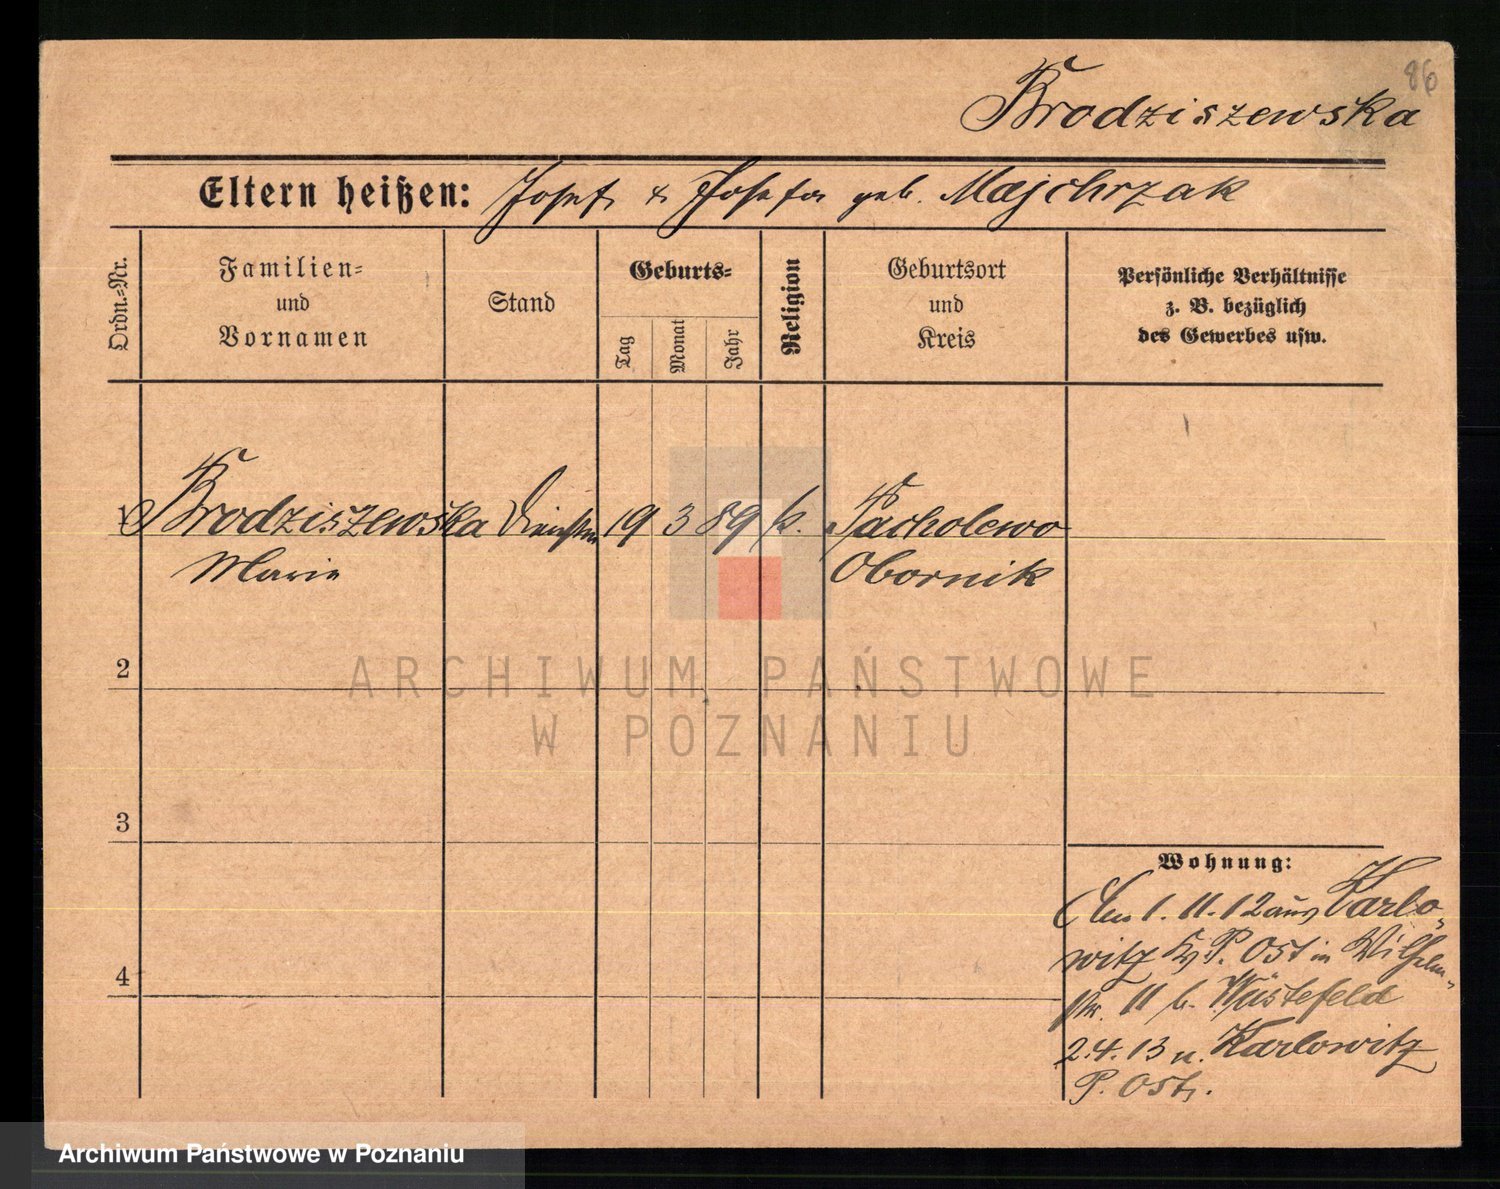 86
Brodziszewska
Eltern heißen: Josef & Josefa geb. Majchrzak
Ordn.=Nr.
Familien=
und
Vornamen
Stand
Geburts=
Tag
Monat
Jahr
Religion
Geburtsort
und
Kreis
Persönliche Verhältnisse
z. B. bezüglich
des Gewerbes usw.
1 Brodziszewska 19 3 89 k. Pacholewo
Marie Obornik
2
ARCHIWUM PAŃSTWOWE
W POZNANIU
3
Wohnung:
1. 11. 12 aus Karlo-
witz Kr. P. Ost in Wilhelm-
str. 11 b. Wüstefeld
4
2.4.13 n. Karlowitz
P. Ost.
Archiwum Państwowe w Poznaniu